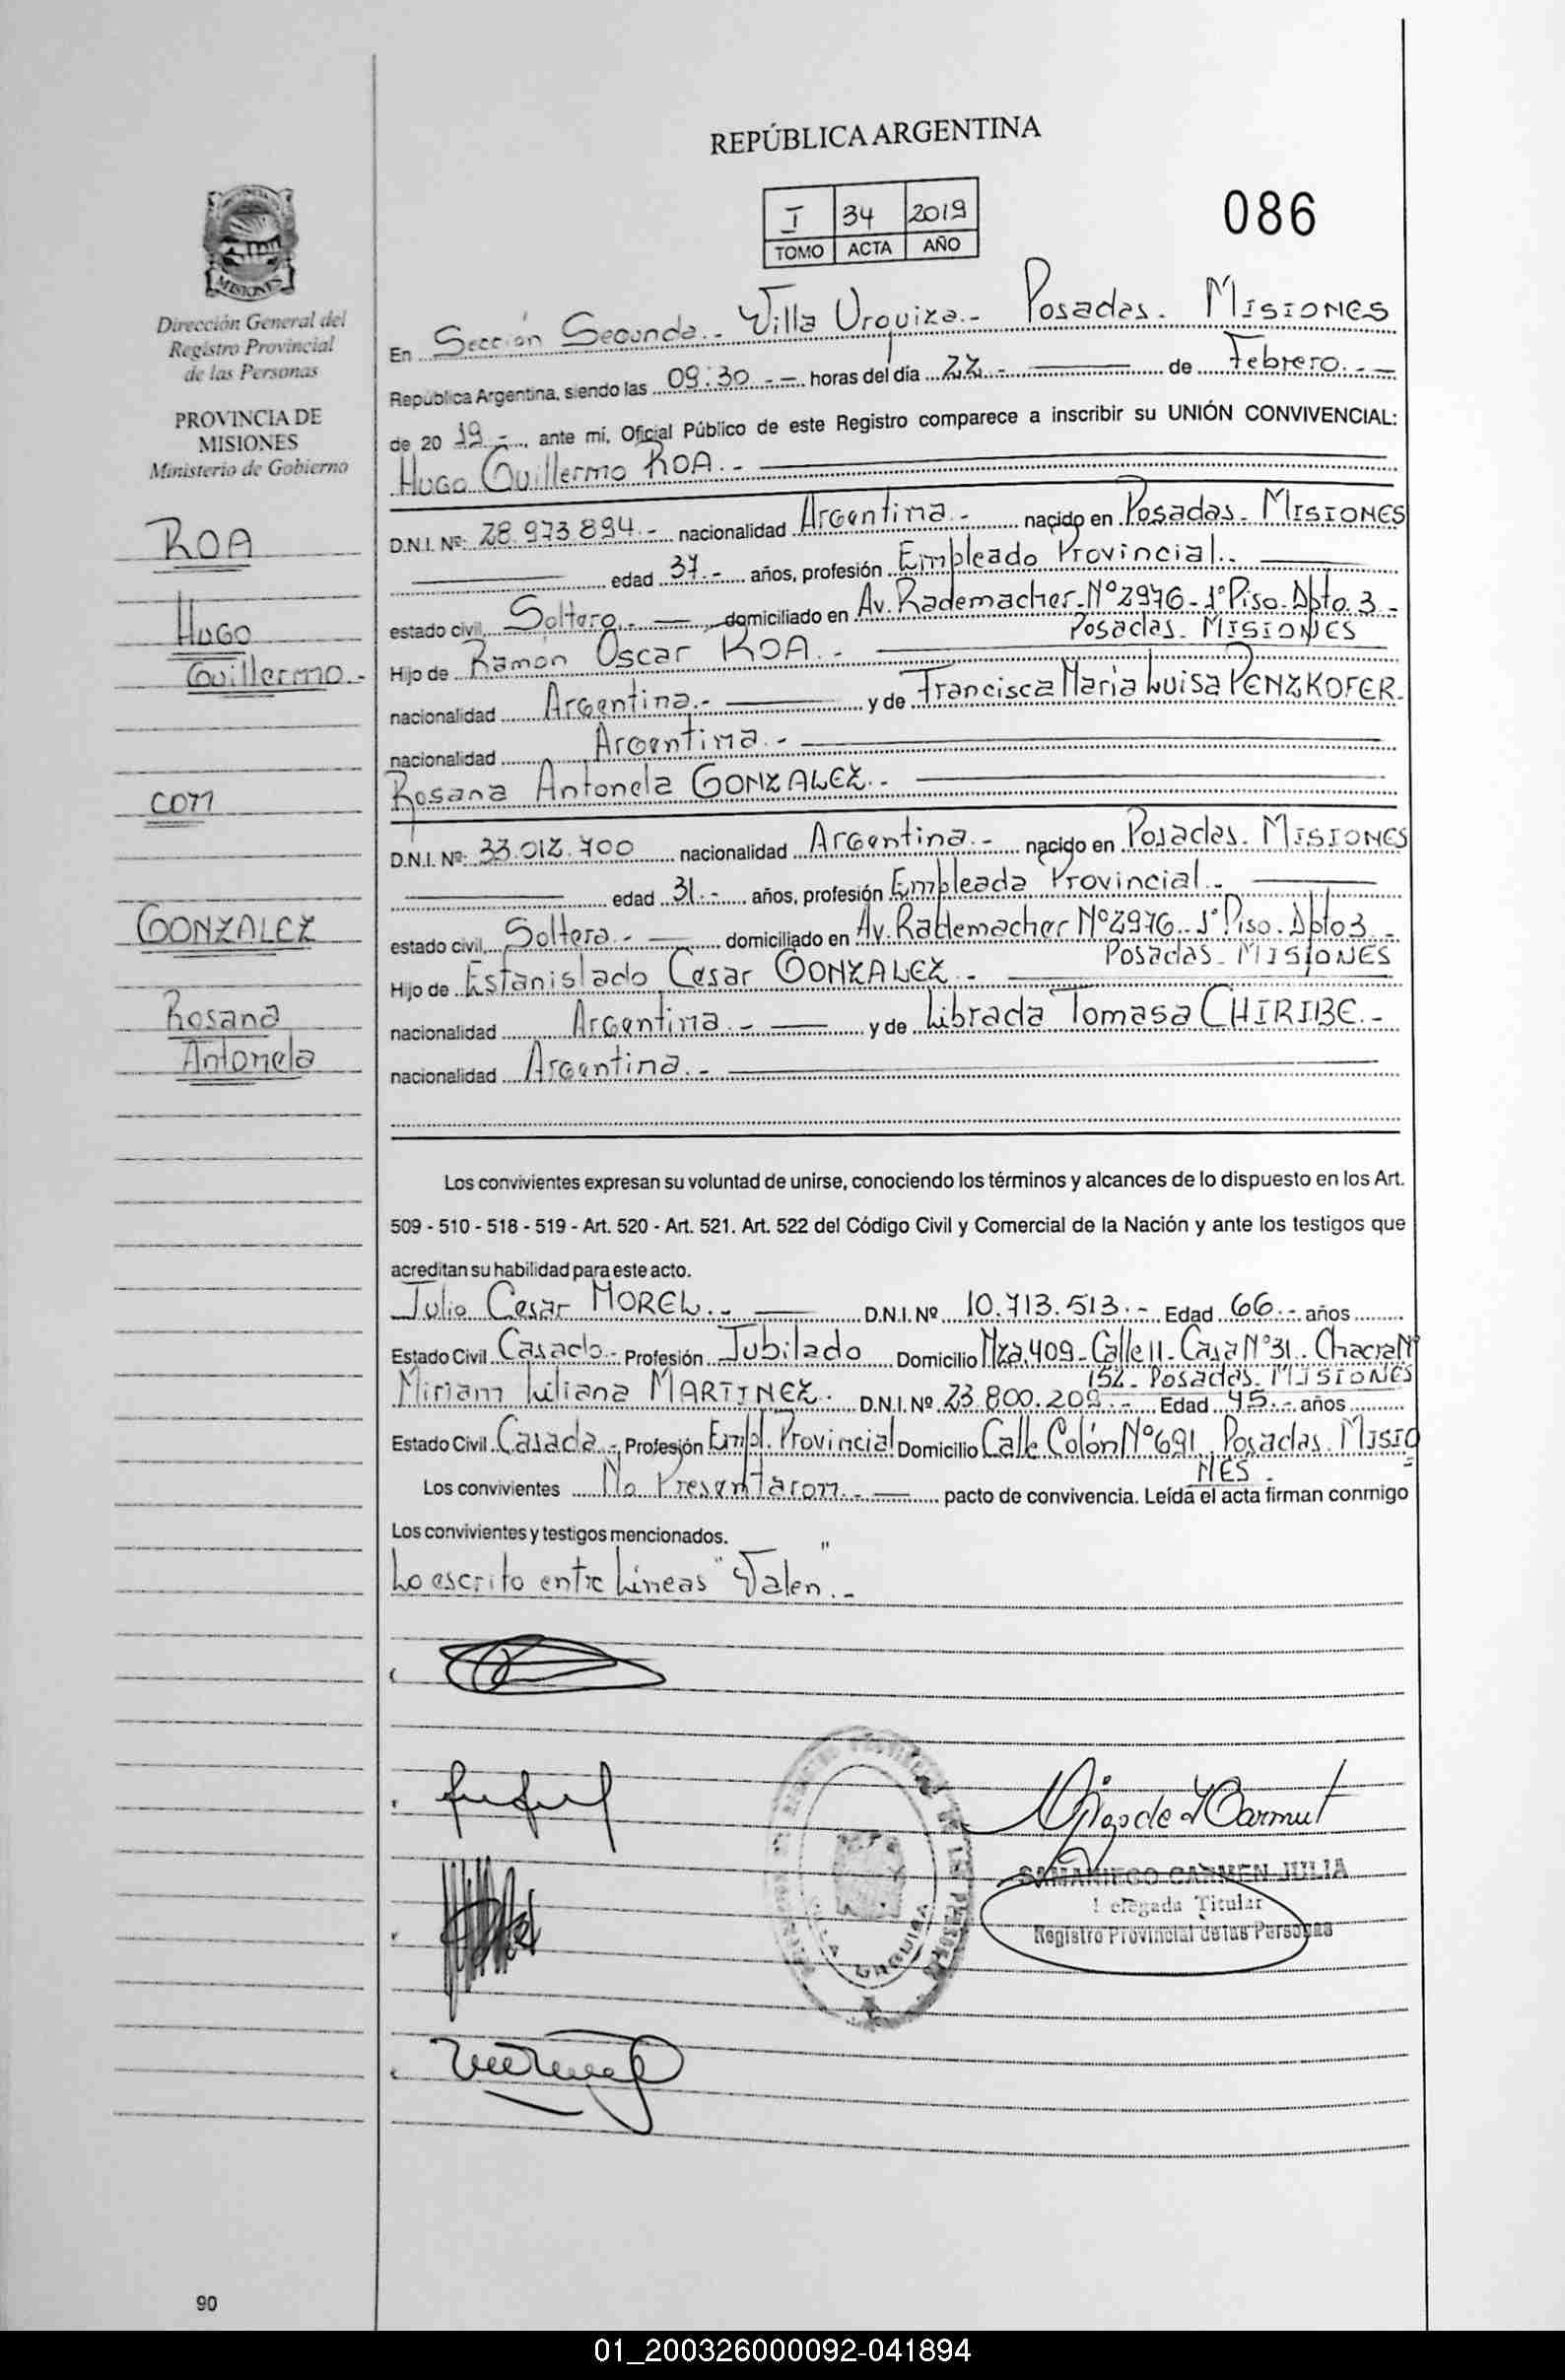 REPÚBLICA ARGENTINA
I 34 2019
TOMO ACTA AÑO
086
MISIONES
Dirección General del
Registro Provincial
de las Personas
PROVINCIA DE
MISIONES
Ministerio de Gobierno
ROA
Hugo
Guillermo.-
con
GONZALEZ
Rosana
Antonela
En Sección Segunda.- Villa Urquiza.- Posadas. Misiones
República Argentina, siendo las 09:30 .-- horas del día 22.- de Febrero.--
de 20 19.-, ante mí, Oficial Público de este Registro comparece a inscribir su UNIÓN CONVIVENCIAL:
Hugo Guillermo ROA.-
D.N.I. Nº: 28.973.894.- nacionalidad Argentina.- nacido en Posadas. Misiones
edad 37.- años, profesión Empleado Provincial.-
estado civil, Soltero.- domiciliado en Av. Rademacher-Nº2976-1º Piso-Dpto. 3-
Posadas. Misiones
Hijo de Ramón Oscar ROA.-
nacionalidad Argentina.- y de Francisca María Luisa PENZKOFER.
nacionalidad Argentina.-
Rosana Antonela GONZALEZ.-
D.N.I. Nº: 33.012.700 nacionalidad Argentina.- nacido en Posadas. Misiones
edad 31.- años, profesión Empleada Provincial.-
estado civil, Soltera.- domiciliado en Av. Rademacher Nº2976.-1º Piso. Dpto 3.-
Posadas. Misiones
Hijo de Estanislado Cesar GONZALEZ.-
nacionalidad Argentina.- y de Librada Tomasa CHIRIBE.-
nacionalidad Argentina.-
Los convivientes expresan su voluntad de unirse, conociendo los términos y alcances de lo dispuesto en los Art.
509 - 510 - 518 - 519 - Art. 520 - Art. 521. Art. 522 del Código Civil y Comercial de la Nación y ante los testigos que
acreditan su habilidad para este acto.
Julio Cesar MOREL.- D.N.I. Nº 10.713.513.- Edad 66.- años
Estado Civil Casado.- Profesión Jubilado Domicilio Mza. 409-Calle 11-Casa Nº31. Chacra Nº
152. Posadas. Misiones
Miriam Juliana MARTINEZ. D.N.I. Nº 23.800.209.- Edad 45.- años
Estado Civil Casada.-, Profesión Empl. Provincial Domicilio Calle Colón Nº691. Posadas. Misio
nes.
Los convivientes No Presentaron.- pacto de convivencia. Leída el acta firman conmigo
Los convivientes y testigos mencionados.
Lo escrito entre Líneas "Valen".-
SAMANIEGO CARMEN JULIA
Delegada Titular
Registro Provincial de las Personas
VILLA URQUIZA
90
01_200326000092-041894